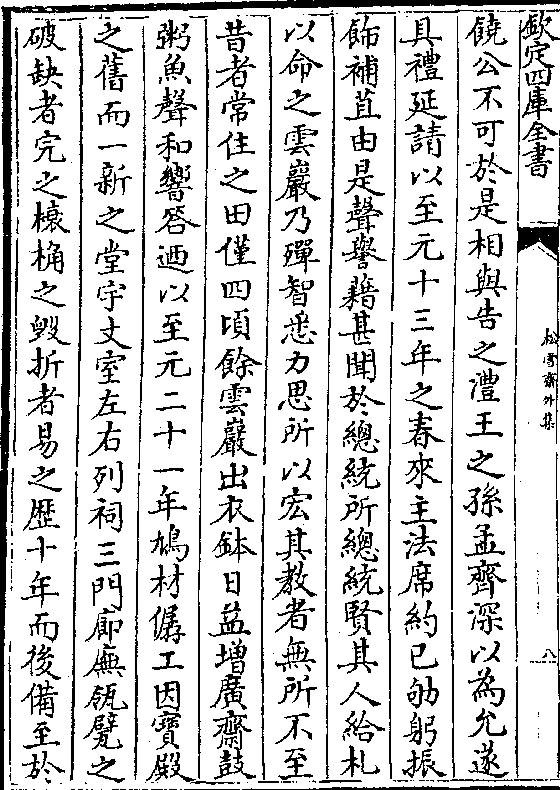 欽定四庫全書
松雪齋外集
八
饒公不可於是相與告之澧王之孫孟齊深以為允遂
具禮延請以至元十三年之春來主法席約己劬躬振
飾補苴由是聲譽藉甚聞於總統所總統賢其人給札
以命之雲巖乃殫智悉力思所以宏其教者無所不至
昔者常住之田僅四頃餘雲巖出衣鉢日益增廣齋鼓
粥魚聲和響答迺以至元二十一年鳩材僝工因寶殿
之舊而一新之堂宇丈室左右列祠三門廊廡瓴甓之
破缺者完之榱桷之毀折者易之歷十年而後備至於